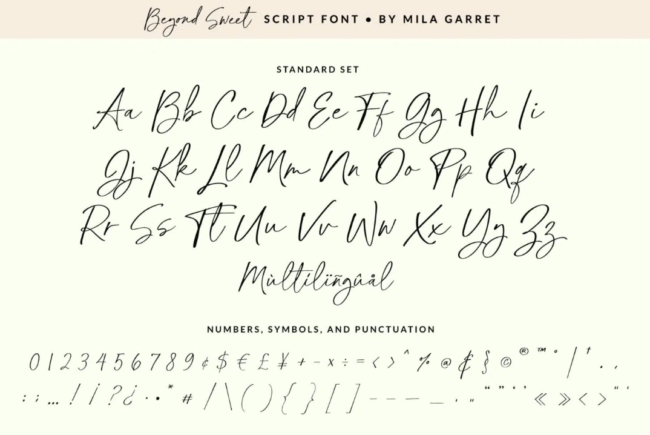 Beyond Sweet SCRIPT FONT • BY MILA GARRET
STANDARD SET
Aa Bb Cc Dd Ee Ff Gg Hh Ii
Jj Kk Ll Mm Nn Oo Pp Qq
Rr Ss Tt Uu Vv Ww Xx Yy Zz
Mùltilïñgûål
NUMBERS, SYMBOLS, AND PUNCTUATION
0 1 2 3 4 5 6 7 8 9 ¢ $ € £ ¥ + - × ÷ = < > ^ % @ & § © ® ™ ° | † . ,
: ; … ! ¡ ? ¿ · • * # / \ ( ) { } [ ] - – — _ ‚ „ “ ” ‘ ’ « » ‹ › " '